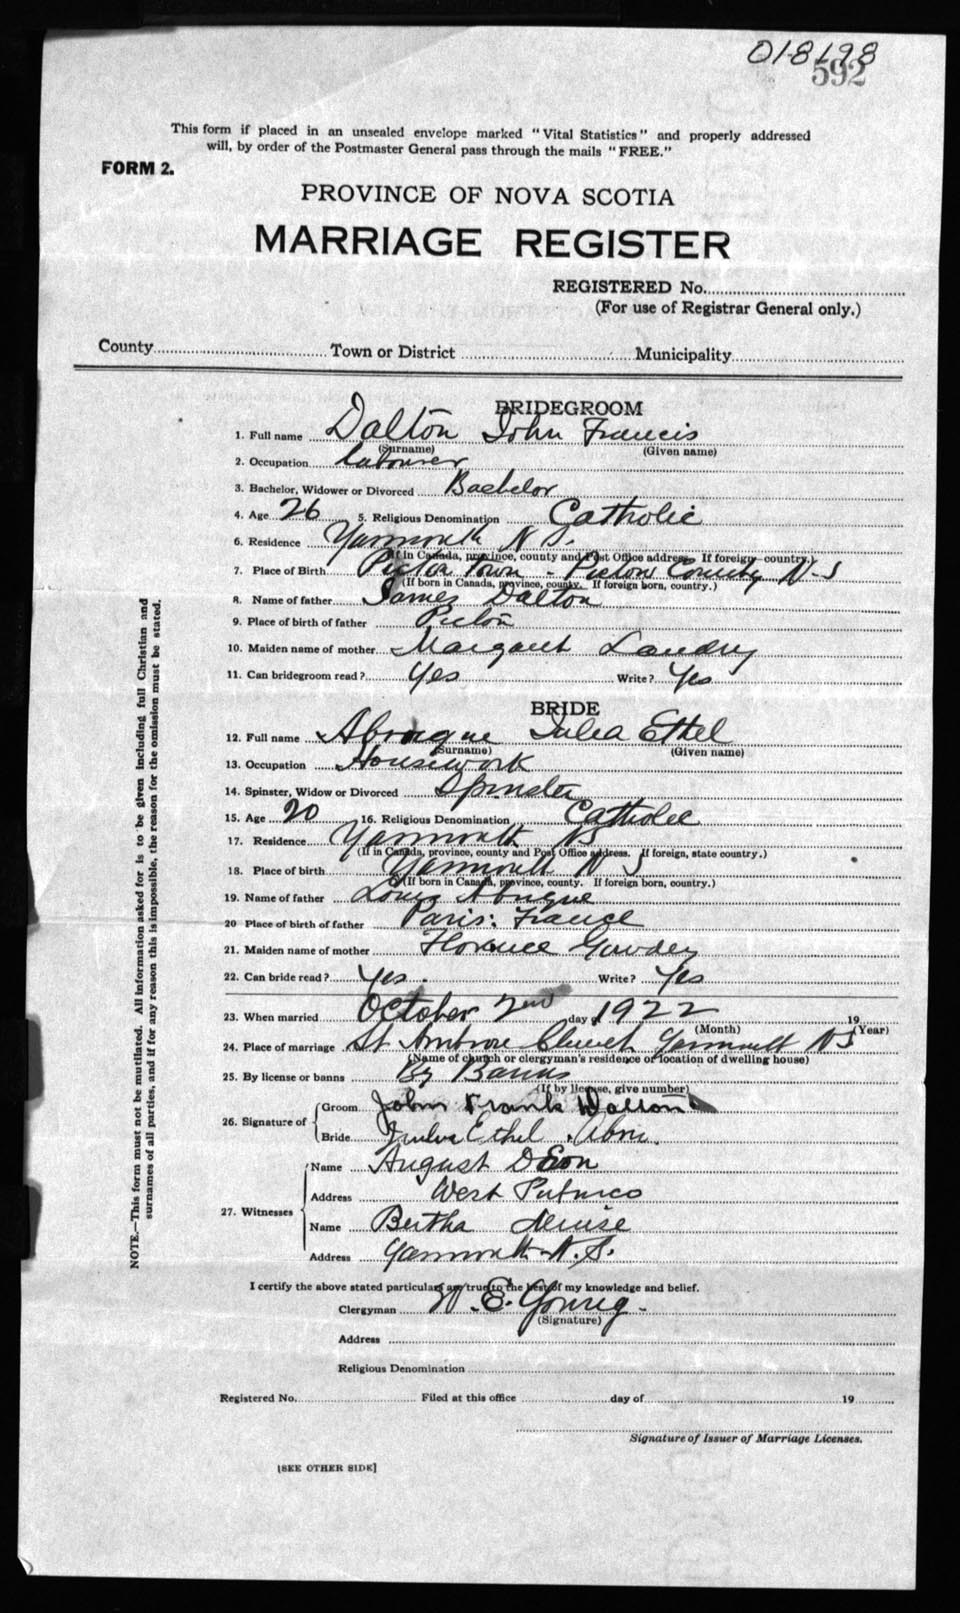 018198
592
This form if placed in an unsealed envelope marked "Vital Statistics" and properly addressed
will, by order of the Postmaster General pass through the mails "FREE."
FORM 2.
PROVINCE OF NOVA SCOTIA
MARRIAGE REGISTER
REGISTERED No.
(For use of Registrar General only.)
County Town or District Municipality
BRIDEGROOM
1. Full name Dalton John Francis
(Surname) (Given name)
2. Occupation labourer
3. Bachelor, Widower or Divorced Bachelor
4. Age 26 5. Religious Denomination Catholic
6. Residence Yarmouth N S.
(If in Canada, province, county and Post Office address. If foreign country.)
7. Place of Birth Pictou Town - Pictou County N-S
(If born in Canada, province, county. If foreign born, country.)
8. Name of father James Dalton
9. Place of birth of father Pictou
10. Maiden name of mother Margaret Landry
11. Can bridegroom read? Yes Write? Yes
BRIDE
12. Full name Julia Ethel
(Surname) (Given name)
13. Occupation Housework
14. Spinster, Widow or Divorced Spinster
15. Age 20 16. Religious Denomination Catholic
17. Residence Yarmouth NS
(If in Canada, province, county and Post Office address. If foreign, state country.)
18. Place of birth Yarmouth N S
(If born in Canada, province, county. If foreign born, country.)
19. Name of father Louis
20 Place of birth of father Paris: France
21. Maiden name of mother Florence
22. Can bride read? Yes. Write? Yes
23. When married October 2nd day 1922 19
(Month) (Year)
24. Place of marriage St Ambrose Church Yarmouth NS
(Name of church or clergyman's residence or location of dwelling house)
25. By license or banns By Banns
(If by license, give number)
26. Signature of Groom John Frank Dalton
Bride Julia Ethel
27. Witnesses Name August
Address West Pubnico
Name Bertha
Address Yarmouth N.S.
I certify the above stated particulars are true to the best of my knowledge and belief.
Clergyman W. E. Young.
(Signature)
Address
Religious Denomination
Registered No. Filed at this office day of 19
Signature of Issuer of Marriage Licenses.
[SEE OTHER SIDE]
NOTE.—This form must not be mutilated. All information asked for is to be given including full Christian and
surnames of all parties, and if for any reason this is impossible, the reason for the omission must be stated.